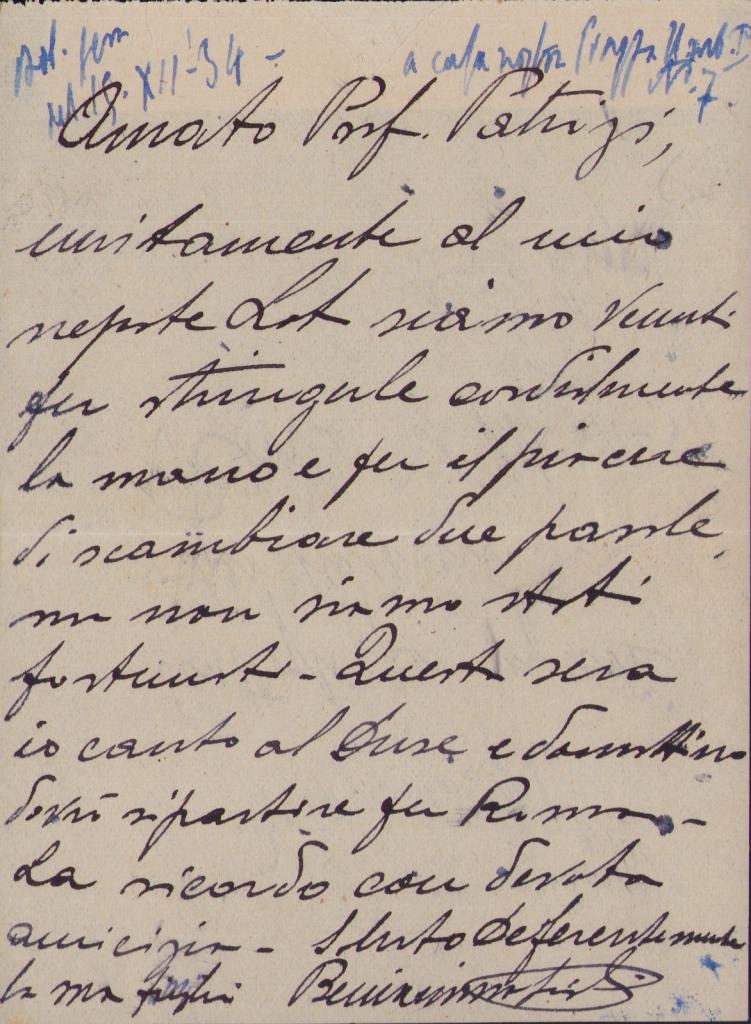 XII-34 -
a casa nostra Piazza Umb. I° N. 7.
Amato Prof. Patrizi,
unitamente al mio
nepote Lot siamo venuti
per stringerle cordialmente
la mano e per il piacere
di scambiare due parole,
ma non siamo stati
fortunati - Questa sera
io canto al Duse e domattina
dovrò ripartire per Roma -
La ricordo con devota
amicizia - Saluto deferentemente
la sua